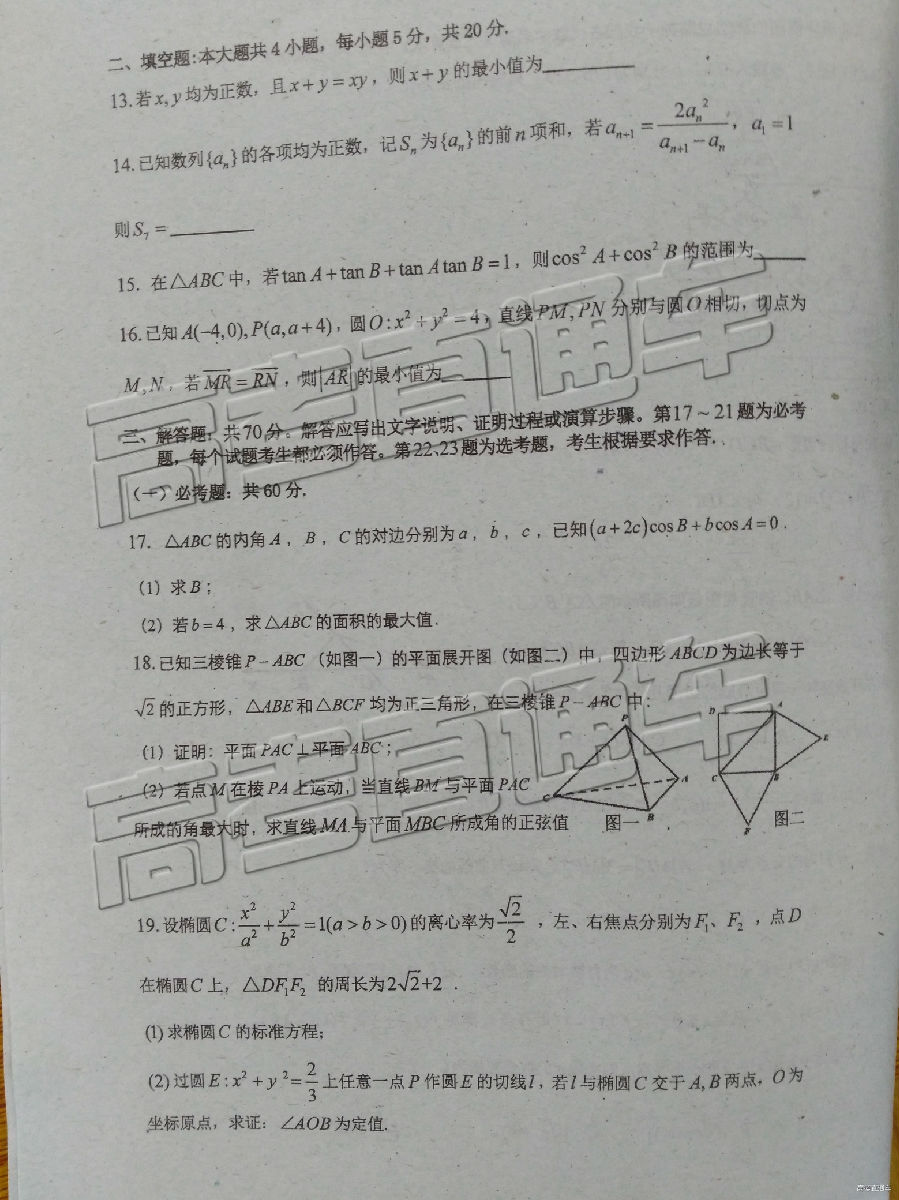 二、填空题:本大题共4小题，每小题5分，共20分.
13.若x,y均为正数，且x+y=xy，则x+y的最小值为________
14.已知数列{aₙ}的各项均为正数，记Sₙ为{aₙ}的前n项和，若aₙ₊₁=2aₙ²/(aₙ₊₁-aₙ)，a₁=1
则S₇=________
15. 在△ABC中，若tan A+tan B+tan A tan B=1，则cos² A+cos² B的范围为_____
16.已知A(-4,0),P(a,a+4)，圆O:x²+y²=4，直线PM,PN分别与圆O相切，切点为
M,N，若MR=RN，则|AR|的最小值为______
三、解答题：共70分。解答应写出文字说明、证明过程或演算步骤。第17～21题为必考
题，每个试题考生都必须作答。第22、23题为选考题，考生根据要求作答.
(一)必考题：共60分.
17. △ABC的内角A，B，C的对边分别为a，b，c，已知(a+2c)cosB+bcosA=0.
(1) 求B；
(2) 若b=4，求△ABC的面积的最大值.
18.已知三棱锥P-ABC（如图一）的平面展开图（如图二）中，四边形ABCD为边长等于
√2的正方形，△ABE和△BCF均为正三角形，在三棱锥P-ABC中：
(1) 证明：平面PAC⊥平面ABC；
(2) 若点M在棱PA上运动，当直线BM与平面PAC
所成的角最大时，求直线MA与平面MBC所成角的正弦值
P
A
B
C
图一
D
A
E
C
B
F
图二
19.设椭圆C:x²/a²+y²/b²=1(a>b>0)的离心率为√2/2，左、右焦点分别为F₁、F₂，点D
在椭圆C上，△DF₁F₂ 的周长为2√2+2.
(1) 求椭圆C的标准方程;
(2) 过圆E:x²+y²=2/3上任意一点P作圆E的切线l，若l与椭圆C交于A,B两点，O为
坐标原点，求证：∠AOB为定值.
高考直通车
高考直通车
高考直通车